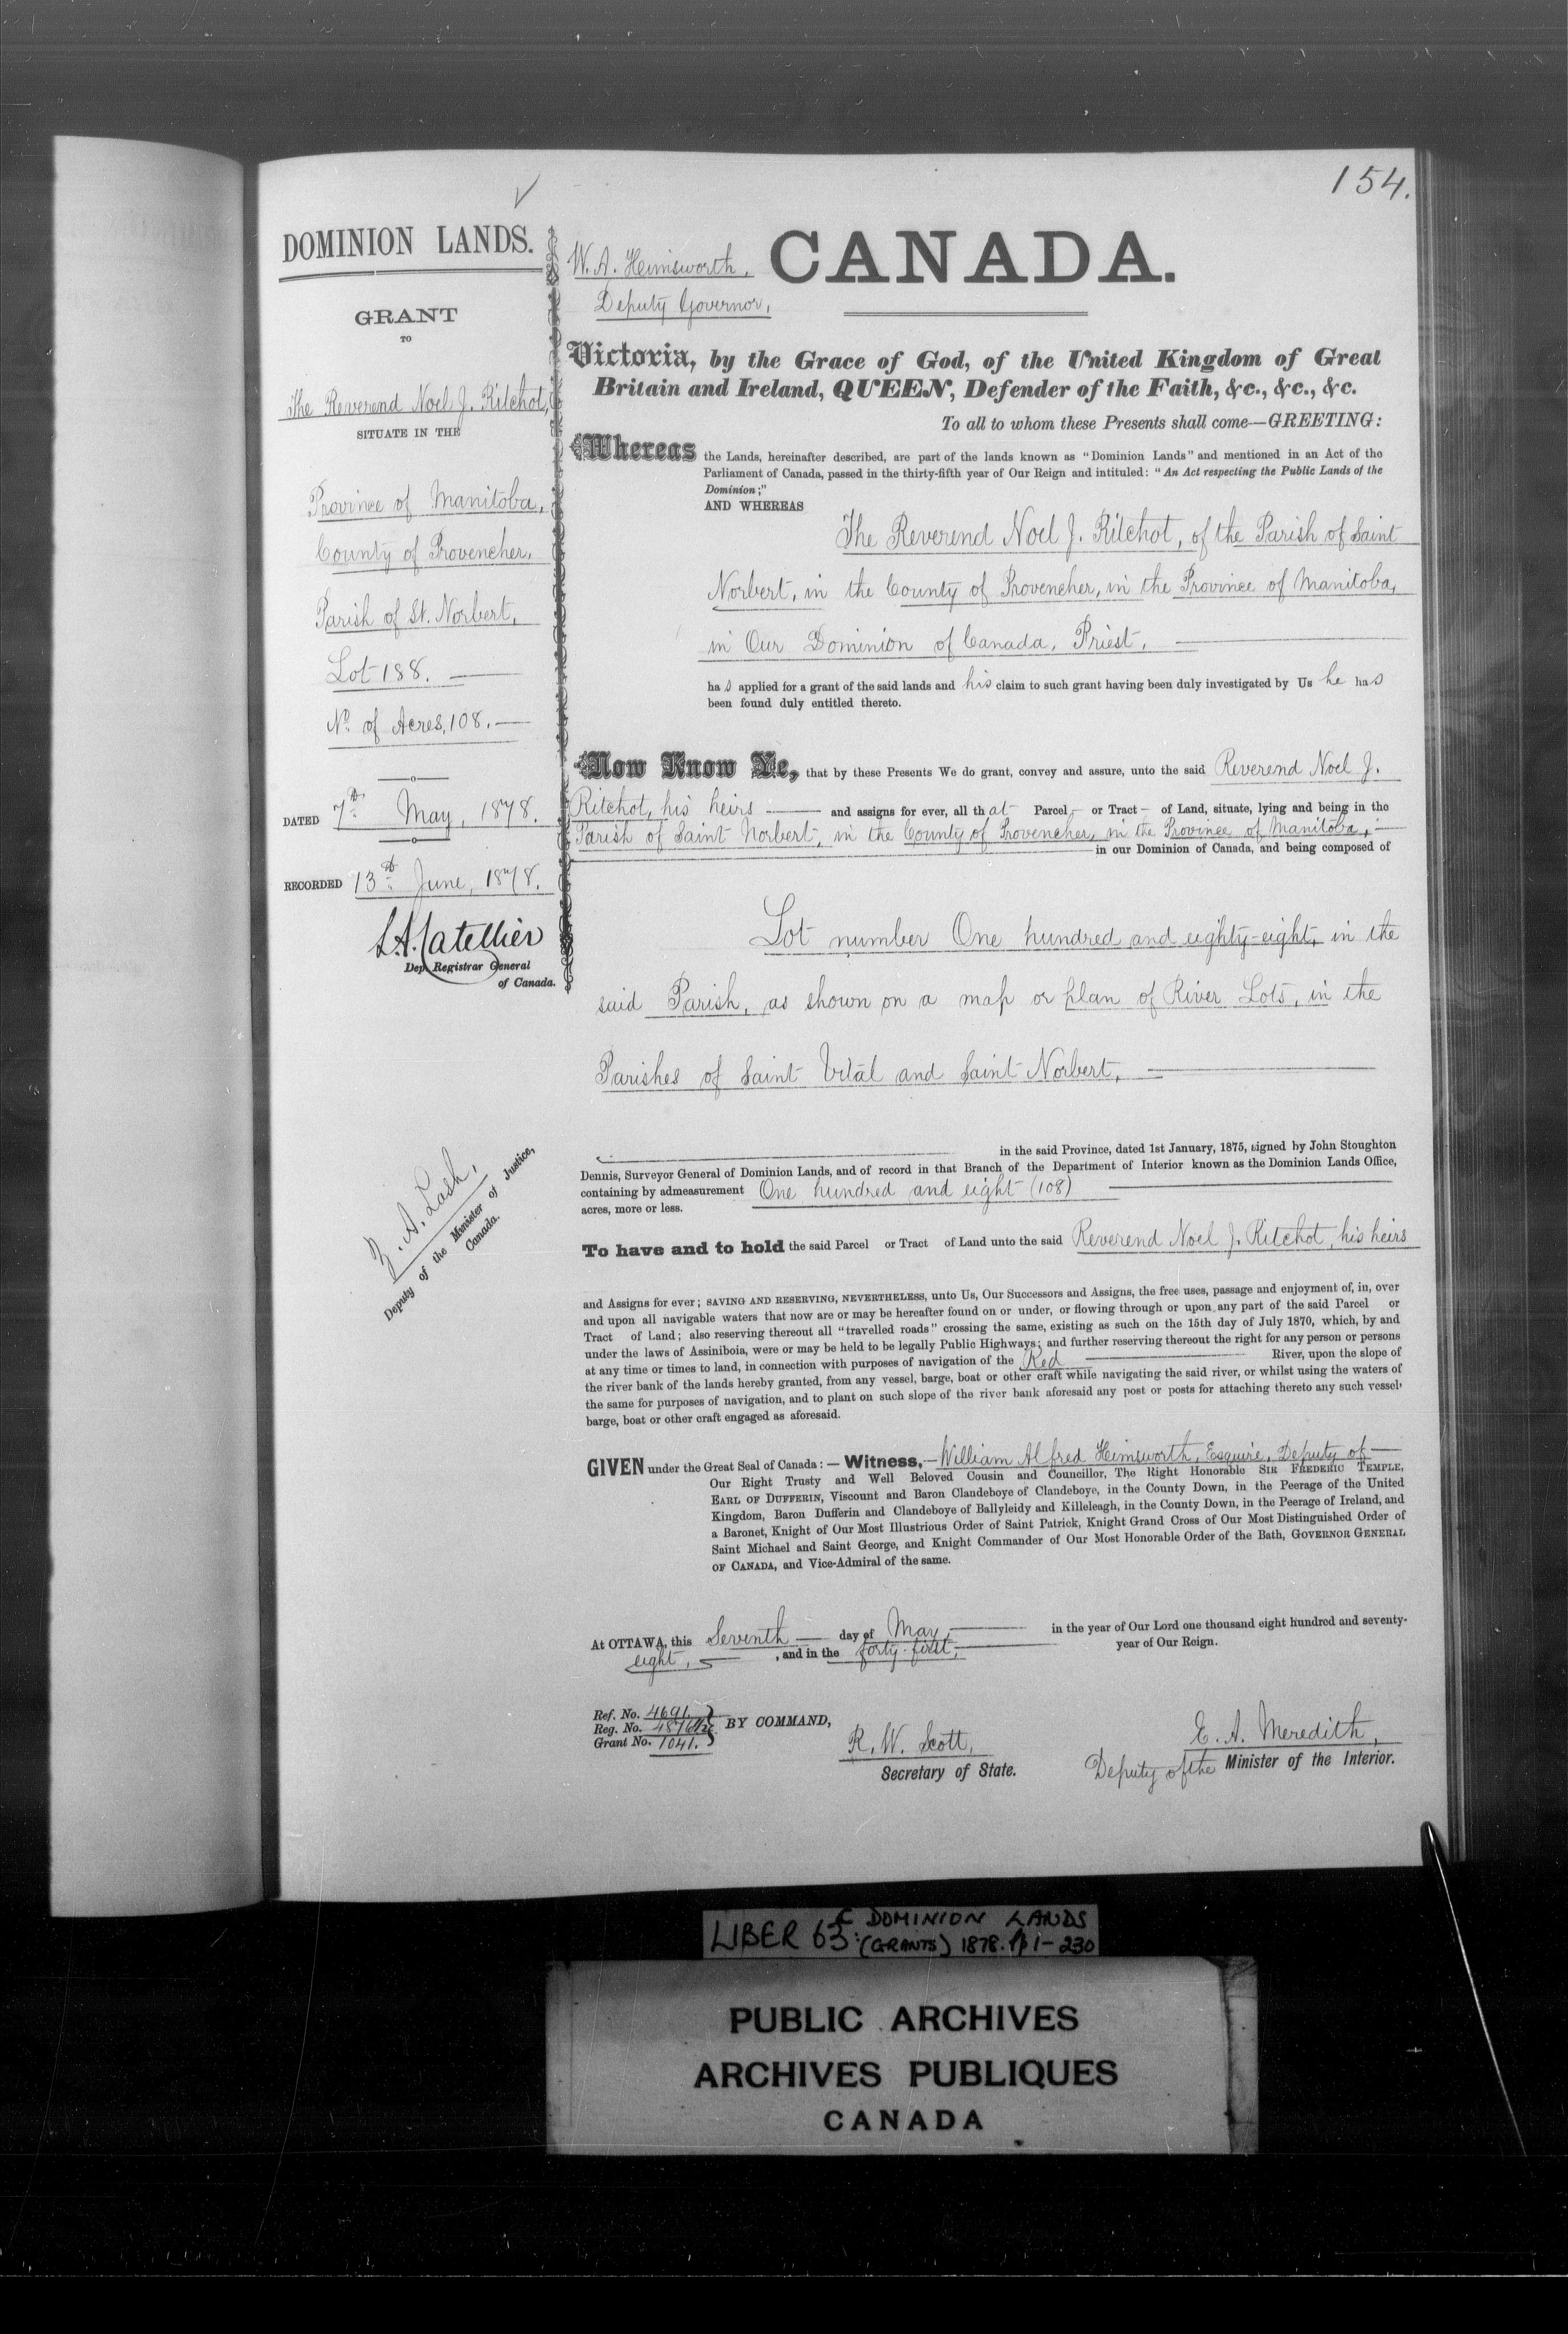 154.
DOMINION LANDS.
GRANT
TO
The Reverend Noel J. Ritchot,
SITUATE IN THE
Province of Manitoba,
County of Provencher,
Parish of St. Norbert,
Lot 188.
No. of Acres, 108.
DATED 7th May, 1878.
RECORDED 13th June, 1878.
L.A. Catellier
Dep. Registrar General
of Canada.
Z. A. Lash,
Deputy of the Minister of Justice,
Canada.
W. A. Himsworth,
Deputy Governor,
CANADA.
Victoria, by the Grace of God, of the United Kingdom of Great
Britain and Ireland, QUEEN, Defender of the Faith, &c., &c., &c.
To all to whom these Presents shall come—GREETING:
Whereas the Lands, hereinafter described, are part of the lands known as "Dominion Lands" and mentioned in an Act of the
Parliament of Canada, passed in the thirty-fifth year of Our Reign and intituled: "An Act respecting the Public Lands of the
Dominion;"
AND WHEREAS
The Reverend Noel J. Ritchot, of the Parish of Saint
Norbert, in the County of Provencher, in the Province of Manitoba,
in Our Dominion of Canada, Priest,
has applied for a grant of the said lands and his claim to such grant having been duly investigated by Us he has
been found duly entitled thereto.
Now Know Ye, that by these Presents We do grant, convey and assure, unto the said Reverend Noel J.
Ritchot, his heirs and assigns for ever, all that Parcel or Tract of Land, situate, lying and being in the
Parish of Saint Norbert, in the County of Provencher, in the Province of Manitoba,
in our Dominion of Canada, and being composed of
Lot number One hundred and eighty-eight, in the
said Parish, as shown on a map or plan of River Lots, in the
Parishes of Saint Vital and Saint Norbert,
in the said Province, dated 1st January, 1875, signed by John Stoughton
Dennis, Surveyor General of Dominion Lands, and of record in that Branch of the Department of Interior known as the Dominion Lands Office,
containing by admeasurement One hundred and eight (108)
acres, more or less.
To have and to hold the said Parcel or Tract of Land unto the said Reverend Noel J. Ritchot, his heirs
and Assigns for ever; SAVING AND RESERVING, NEVERTHELESS, unto Us, Our Successors and Assigns, the free uses, passage and enjoyment of, in, over
and upon all navigable waters that now are or may be hereafter found on or under, or flowing through or upon any part of the said Parcel or
Tract of Land; also reserving thereout all "travelled roads" crossing the same, existing as such on the 15th day of July 1870, which, by and
under the laws of Assiniboia, were or may be held to be legally Public Highways; and further reserving thereout the right for any person or persons
at any time or times to land, in connection with purposes of navigation of the Red River, upon the slope of
the river bank of the lands hereby granted, from any vessel, barge, boat or other craft while navigating the said river, or whilst using the waters of
the same for purposes of navigation, and to plant on such slope of the river bank aforesaid any post or posts for attaching thereto any such vessel,
barge, boat or other craft engaged as aforesaid.
GIVEN under the Great Seal of Canada:—Witness,—William Alfred Himsworth, Esquire, Deputy of
Our Right Trusty and Well Beloved Cousin and Councillor, The Right Honorable SIR FREDERIC TEMPLE,
EARL OF DUFFERIN, Viscount and Baron Clandeboye of Clandeboye, in the County Down, in the Peerage of the United
Kingdom, Baron Dufferin and Clandeboye of Ballyleidy and Killeleagh, in the County Down, in the Peerage of Ireland, and
a Baronet, Knight of Our Most Illustrious Order of Saint Patrick, Knight Grand Cross of Our Most Distinguished Order of
Saint Michael and Saint George, and Knight Commander of Our Most Honorable Order of the Bath, GOVERNOR GENERAL
OF CANADA, and Vice-Admiral of the same.
At OTTAWA, this Seventh day of May, in the year of Our Lord one thousand eight hundred and seventy-
eight, , and in the forty-first, year of Our Reign.
Ref. No. 4691.
Reg. No.
Grant No. 1041.
BY COMMAND,
R. W. Scott,
Secretary of State.
E. A. Meredith,
Deputy of the Minister of the Interior.
LIBER 63C: DOMINION LANDS
(GRANTS) 1878. pp 1-230
PUBLIC ARCHIVES
ARCHIVES PUBLIQUES
CANADA